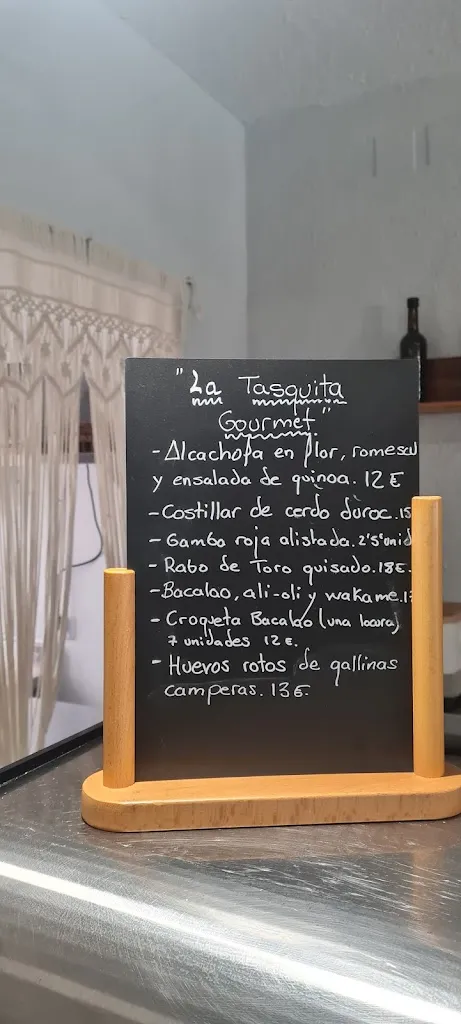 "La Tasquita
Gourmet"
- Alcachofa en flor, romescu
y ensalada de quinoa. 12€
- Costillar de cerdo duroc. 15
- Gamba roja alistada. 2'5'unid
- Rabo de Toro guisado. 18€.
- Bacalao, ali-oli y wakame. 1
- Croqueta Bacalao (una locura)
7 unidades 12€.
- Huevos rotos de gallinas
camperas. 13€